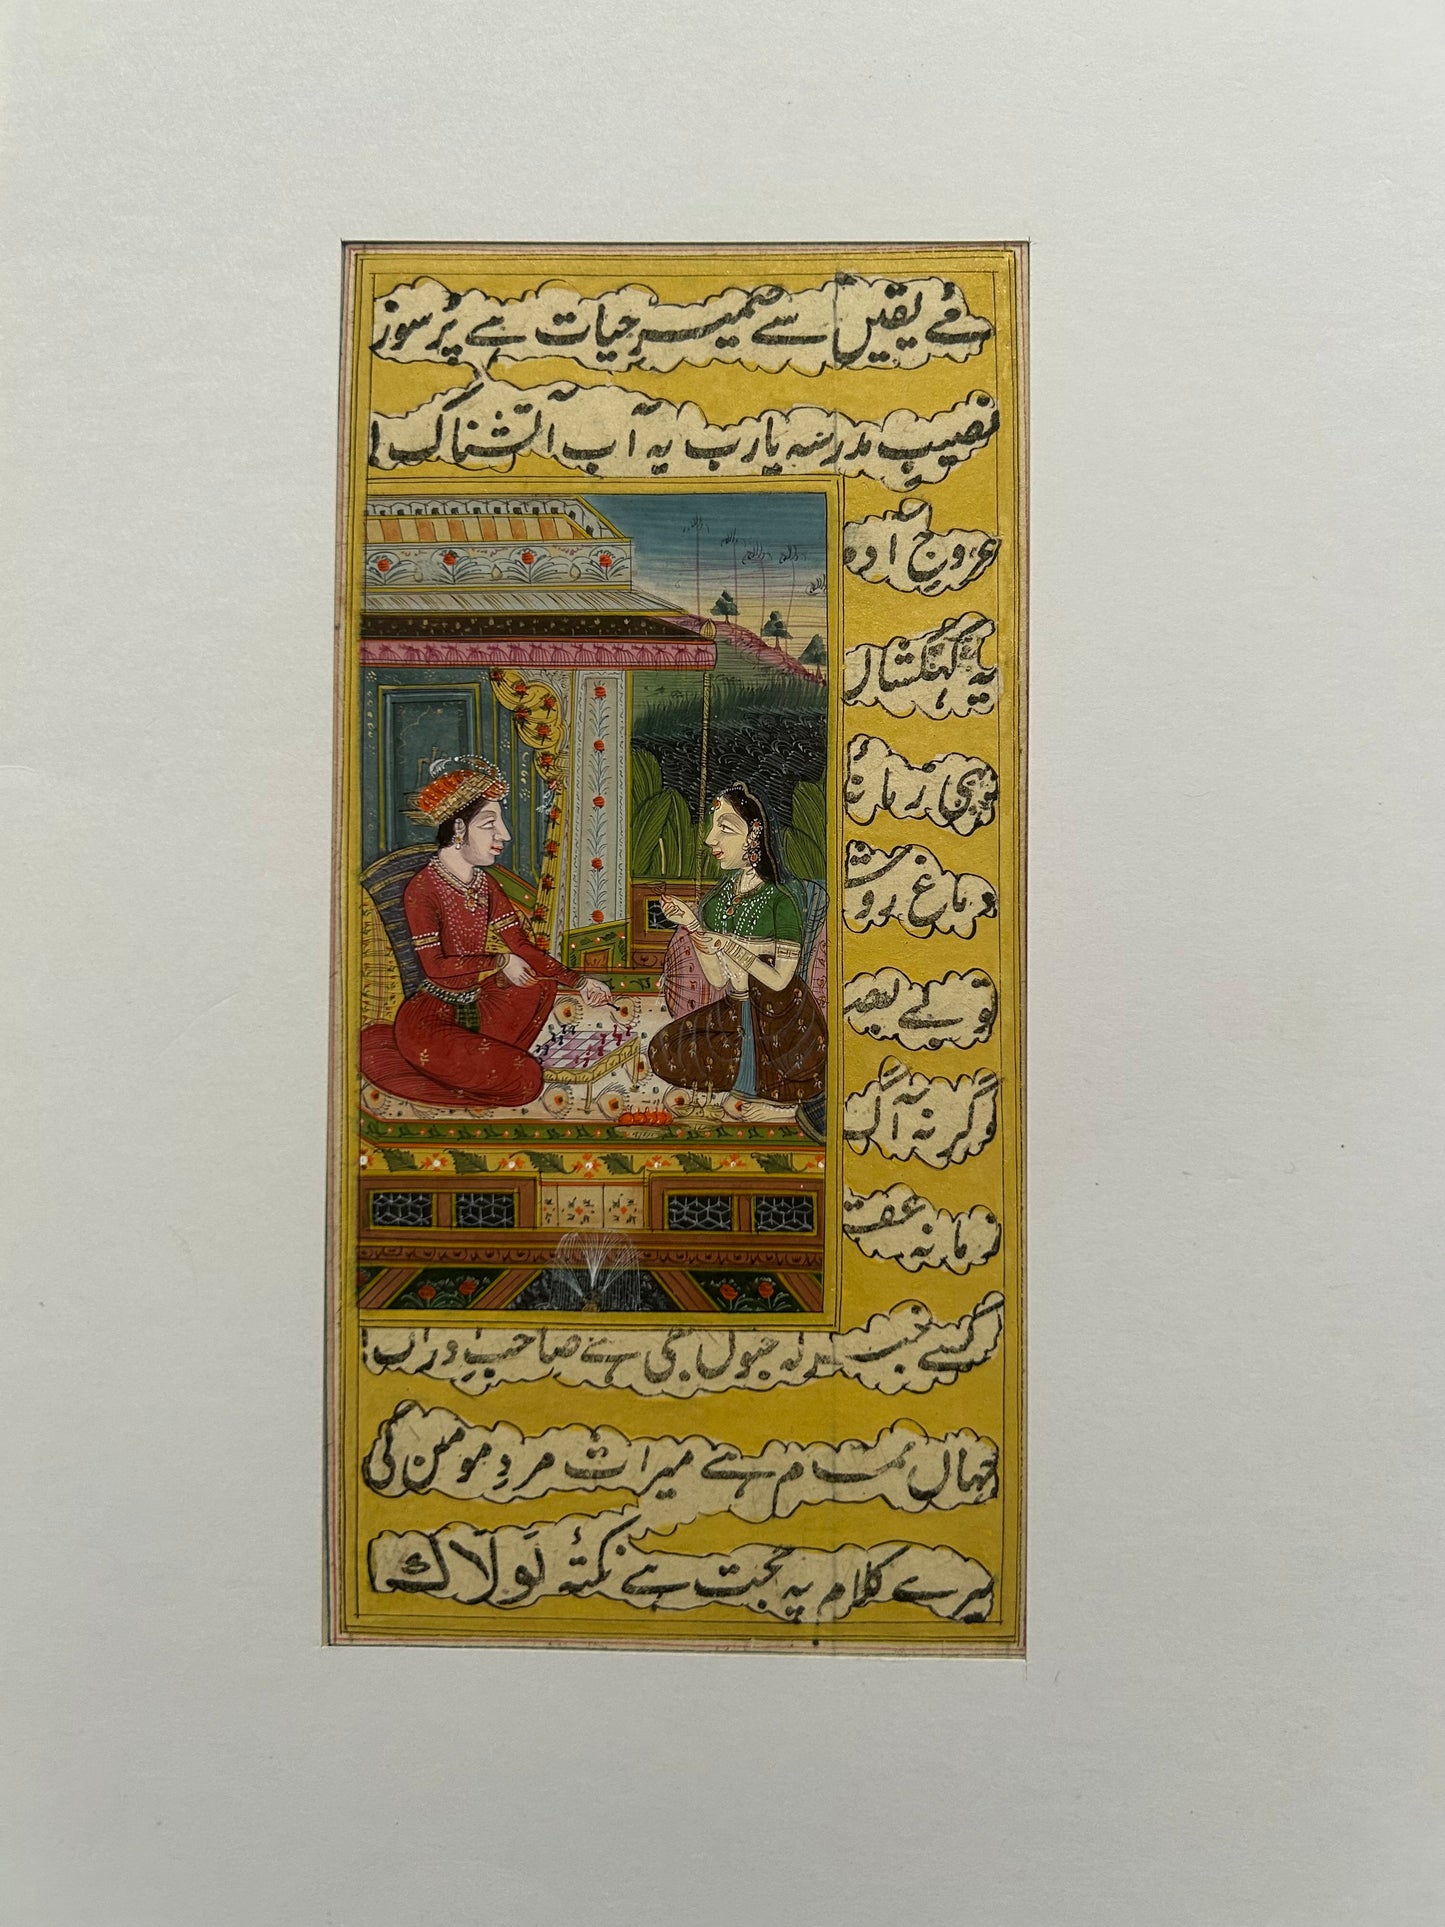 مۓ یقیں سے ضمیرِ حیات ہے پُرسوز
نصیبِ مدرسہ یارب یہ آبِ آتشناک!
عروجِ آدم
یہ کہکشاں
یہی زمانۂ
دماغ روشن
تو بے بصر
وگرنہ آگ
زمانہ عقل
کسے خبر کہ جنوں بھی ہے صاحبِ ادراک!
جہاں تمام ہے میراث مردِ مومن کی
میرے کلام پہ حجت ہے نکتۂ لَولَاک